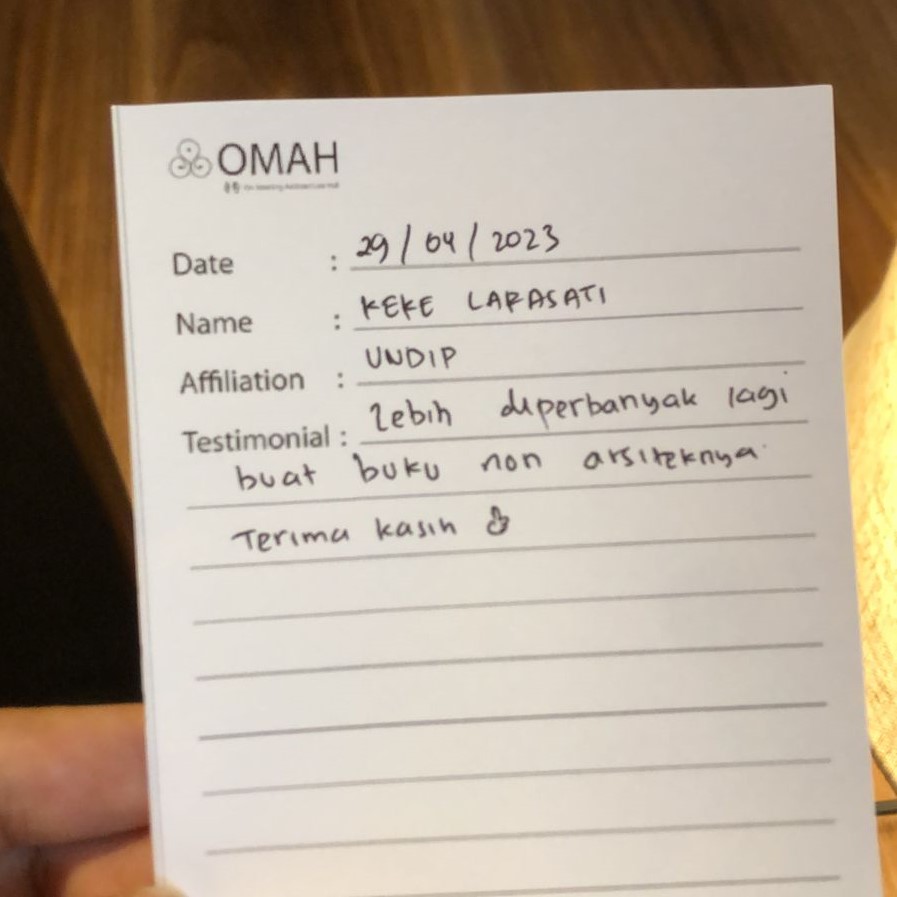 OMAH
Date : 29/04/2023
Name : KEKE LARASATI
Affiliation : UNDIP
Testimonial : lebih diperbanyak lagi
buat buku non arsiteknya.
Terima kasih